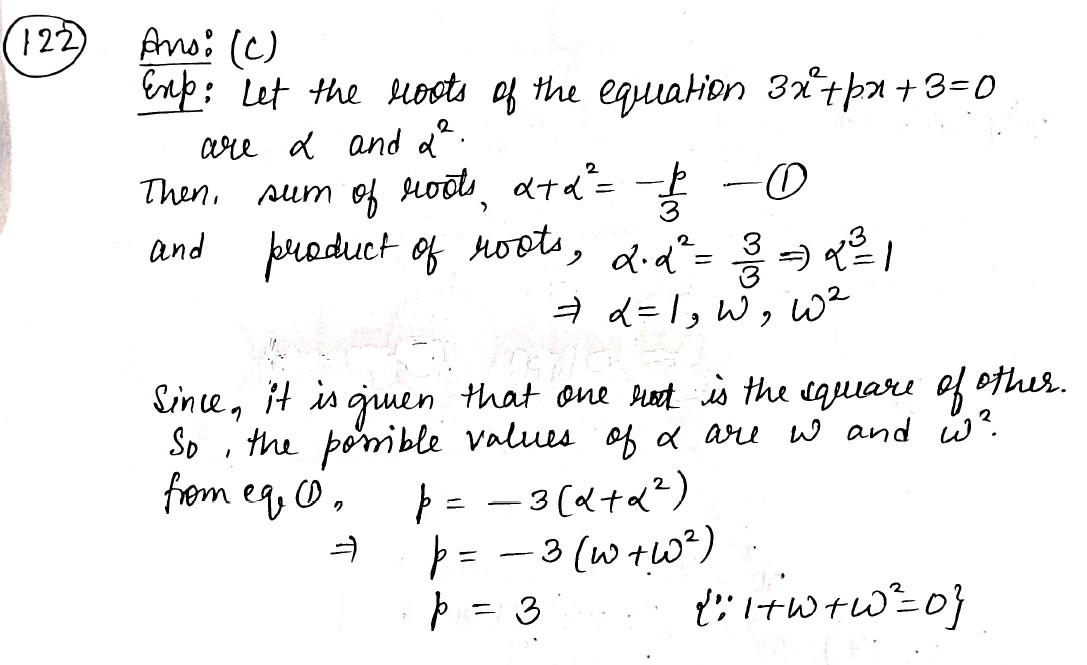 122 Ans: (C)
Exp: Let the roots of the equation 3x²+px+3=0
are α and α².
Then, sum of roots, α+α² = -p/3 —①
and product of roots, α.α² = 3/3 ⇒ α³=1
⇒ α=1, ω, ω²
Since, it is given that one root is the square of other.
So, the possible values of α are ω and ω².
from eq. ①, p = -3(α+α²)
⇒ p = -3(ω+ω²)
p = 3 {∵ 1+ω+ω²=0}